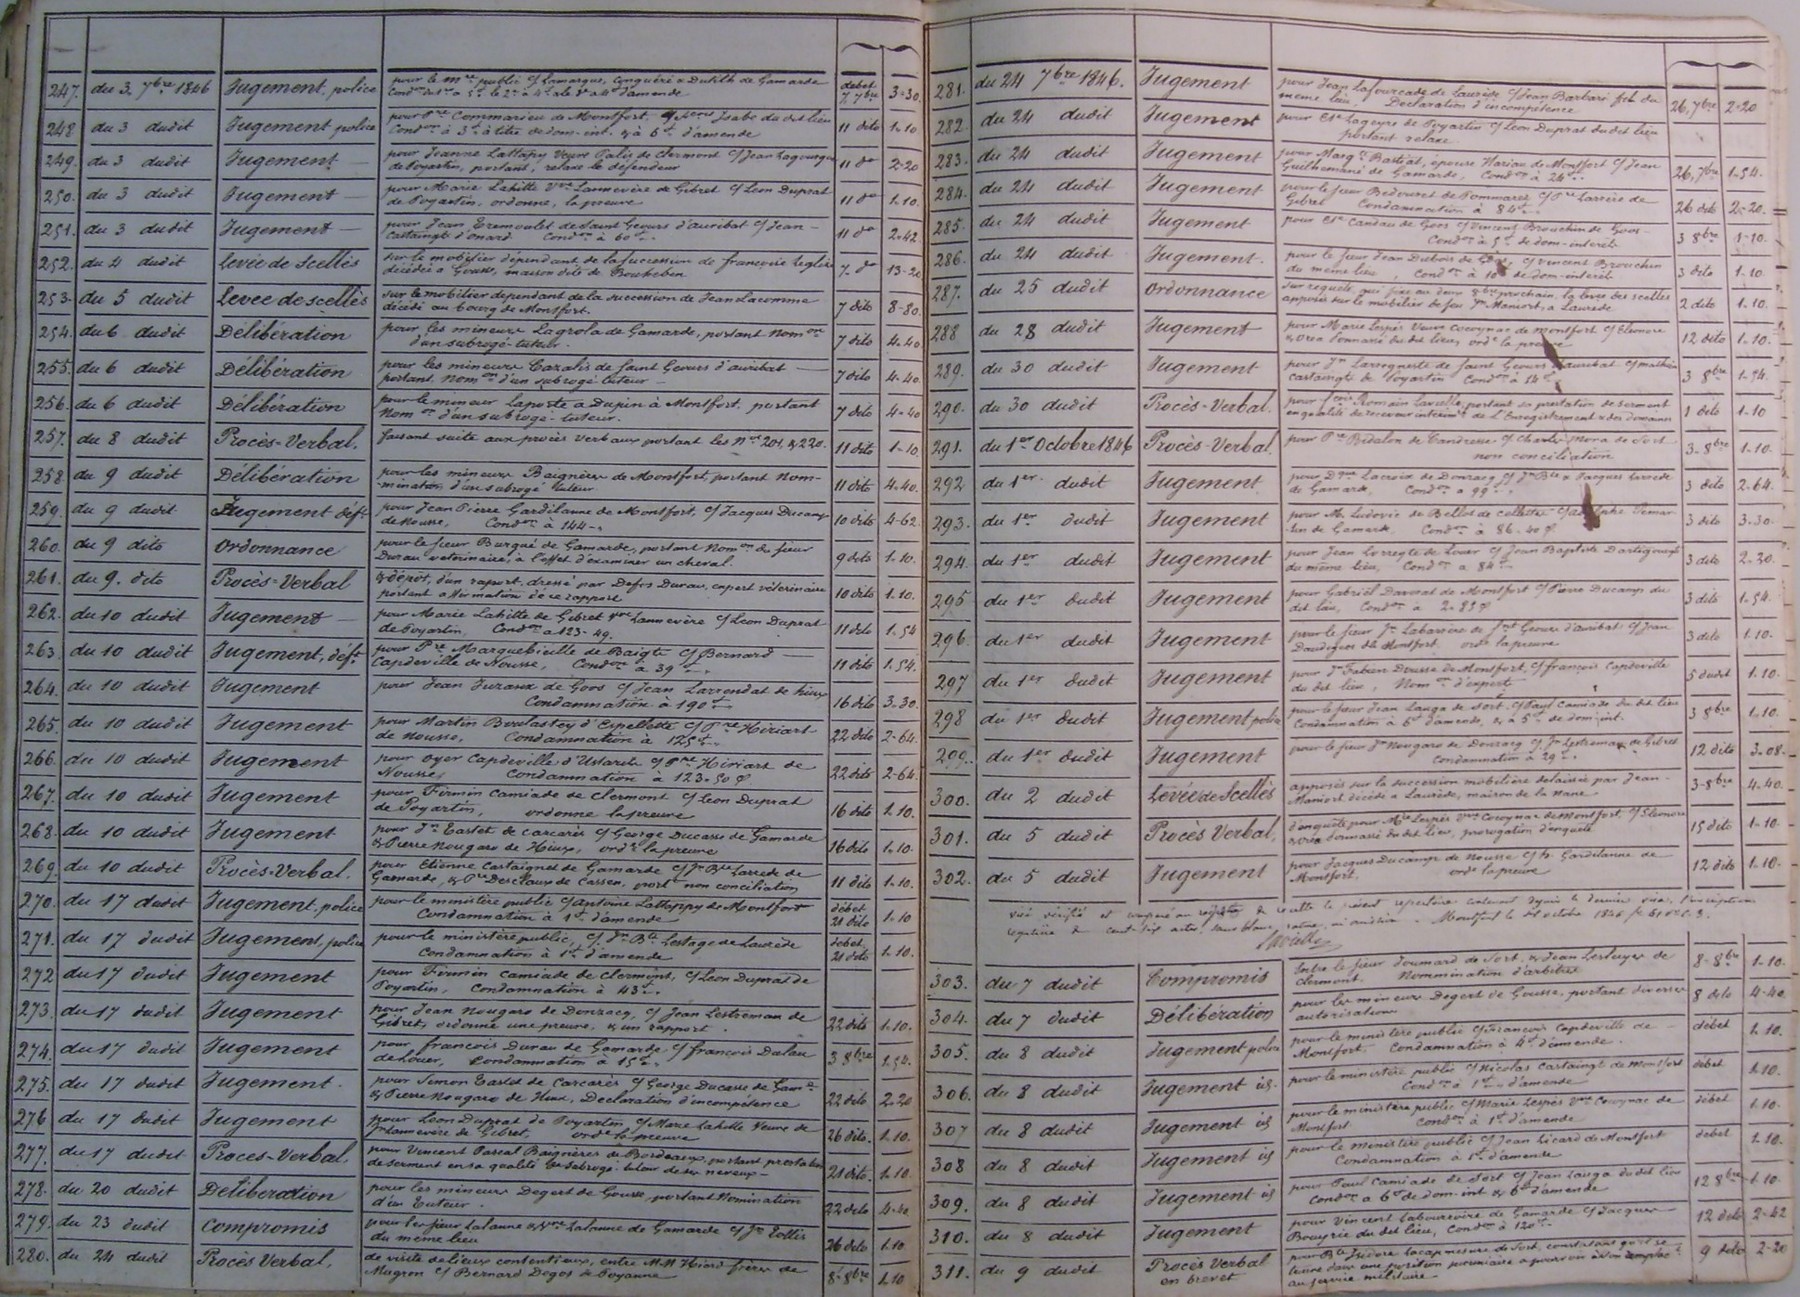 247. du 3. 7bre 1846 Jugement, police pour le mre public c/ Lamarque, conquéré & Dutilh de Gamarde débet 7. 7bre 3-30.
248 du 3 dudit Jugement police pour Pre Commarieu de Montfort, du dit lieu
Condon à 3f à titre de dom. int. & à 6f d'amende 11 dito 1-10.
249. du 3 dudit Jugement pour Jeanne Lattapy Veuve Palis de Clermont c/ Jean Lagourgue
de Poyartin, portant, relaxe le défendeur 11 do 2-20
250. du 3 dudit Jugement pour Marie Lahitte Vve Lannevère de Gibret c/ Léon Duprat
de Poyartin, ordonne, la preuve 11 do 1-10.
251. du 3 dudit Jugement pour Jean Tremoulet de Saint Geours d'auribat c/ Jean
Castaingt d'onard Condon à 60f 11 do 2-42
252. du 4 dudit Levée de Scellés sur le mobilier dépendant de la succession de françoise Léglise
décédée à Gousse, maison dite de 7. do 13-20
253. du 5 dudit Levée de scellés sur le mobilier dépendant de la succession de Jean Lacomme
décédé au bourg de Montfort. 7 dito 8-80.
254. du 6 dudit Délibération pour les mineurs Lagrola de Gamarde, portant Nomon
d'un subrogé-tuteur. 7 dito 4-40
255. du 6 dudit Délibération pour les mineurs Cazalis de Saint Geours d'auribat
portant Nomon d'un subrogé tuteur 7 dito 4-40.
256. du 6 dudit Délibération pour le mineur Laporte a Dupin à Montfort, portant
Nomon d'un subrogé-tuteur. 7 dito 4-40
257. du 8 dudit Procès-Verbal. faisant suite aux procès verbaux portant les Nos 201, & 220. 11 dito 1-10.
258. du 9 dudit Délibération pour les mineurs Baignères de Montfort, portant Nom-
-mination d'un subrogé tuteur 11 dito 4-40.
259. du 9 dudit Jugement déft pour Jean Pierre Gardilanne de Montfort, c/ Jacques Ducamp
de Nousse, Condon à 144 10 dito 4-62.
260. du 9 dito Ordonnance pour le sieur Burgué de Gamarde, portant Nomon du sieur
Durau vétérinaire, à l'effet d'examiner un cheval. 9 dito 1-10.
261. du 9. dito Procès-Verbal de dépot, d'un raport, dressé par Durau, expert vétérinaire
portant affirmation de ce rapport 10 dito 1-10.
262. du 10 dudit Jugement pour Marie Lahitte de Gibret Vve Lannevère c/ Léon Duprat
de Poyartin, Condon à 123-49. 11 dito 1-54
263 du 10 dudit Jugement, déft pour Pre Marquebieille de Baigts c/ Bernard
Capdeville de Nousse, Condon à 39f 11 dito 1-54.
264. du 10 dudit Jugement pour Jean Juzaux de Goos c/ Jean Larrendat de hinx
Condamnation à 190f 16 dito 3-30.
265. du 10 dudit Jugement pour Martin d'Espellette c/ Pre Hiriart
de Nousse, Condamnation à 125f 22 dito 2-64.
266. du 10 dudit Jugement pour Oyer Capdeville d'Ustarits c/ Pre Hiriart de
Nousse, Condamnation à 123-50 22 dito 2-64.
267. du 10 dudit Jugement pour Firmin Camiade de Clermont c/ Léon Duprat
de Poyartin, ordonne la preuve 16 dito 1-10.
268. du 10 dudit Jugement pour Tastet de Carcarès c/ George Ducasse de Gamarde
& Pierre Nougaro de Hinx, orde la preuve 16 dito 1-10.
269. du 10 dudit Procès-Verbal. pour Etienne Castaignet de Gamarde c/ Jn Bte Larrède de
Gamarde, & Pre Desclaux de Cassen, port non conciliation 11 dito 1-10.
270. du 17 dudit Jugement, police pour le ministère public c/ Antoine Lattappy de Montfort
Condamnation à 1f d'amende débet 21 dito 1-10
271. du 17 dudit Jugement, police pour le ministère public, c/ Jn Bte Lestage de Laurède
Condamnation à 1f d'amende débet 21 dito 1-10.
272 du 17 dudit Jugement pour Firmin Camiade de Clermont, c/ Léon Duprat de
Poyartin, Condamnation à 43f
273. du 17 dudit Jugement pour Jean Nougaro de Donzacq, c/ Jean Lestreman de
Gibret, ordonne une preuve, & un rapport. 22 dito 1-10.
274. du 17 dudit Jugement pour francois Durau de Gamarde c/ francois Dulau
de Loüer, Condamnation à 15f 3 8bre 1-54.
275. du 17 dudit Jugement. pour Simon Tastet de Carcarès c/ George Ducasse de Game
& Pierre Nougaro de Hinx, Declaration d'incompétence 22 dito 2-20
276 du 17 dudit Jugement pour Léon Duprat de Poyartin c/ Marie Lahitte Veuve de
Lannevère de Gibret, orde la preuve 26 dito. 1-10.
277. du 17 dudit Procès-Verbal. pour Vincent Pascal Baignères de Bordeaux, portant prestation
de serment en sa qualité de subrogé tuteur de ses neveux 21 dito. 1-10.
278. du 20 dudit Délibération pour les mineurs Degert de Gousse, portant Nomination
d'un Tuteur. 22 dito 4-40
279. du 23 dudit Compromis pour les sieur Lalanne & Vve Lalanne de Gamarde c/ Jn Tollis
du même lieu 26 dito 1-10
280. du 24 dudit Procès Verbal. de visite de lieux contentieux, entre MM Hiard frères de
Mugron c/ Bernard Degos de Poyanne 8-8bre 1-10
281. du 24 7bre 1846. Jugement pour Jean Lafourcade de Laurède c/ Jean Barbari fils du
même lieu. Declaration d'incompétence 26, 7bre 2-20
282. du 24 dudit Jugement pour Lageyre de Poyartin c/ Léon Duprat du dit lieu
portant relaxe
283. du 24 dudit Jugement pour Margte Bastiat, épouse Hariau de Montfort c/ Jean
Guilhemané de Gamarde, Condon à 24f 26, 7bre 1-54.
284. du 24 dudit Jugement pour le sieur Bedouret de Pommarez c/ Pre Larrère de
Gibret Condamnation à 84f 26 dito 2-20.
285. du 24 dudit Jugement pour Candau de Goos c/ Vincent Brouchin de Goos
Condon à 5f de dom-interêts 3 8bre 1-10.
286. du 24 dudit Jugement. pour le sieur Jean Dubois de Goos, c/ Vincent Brouchin
du même lieu, Condon à 10f de dom-interêts 3 dito 1-10.
287. du 25 dudit Ordonnance sur requête, qui fixe au deux 8bre prochain, la levée des scellés
apposés sur le mobilier de feu Maniort, à Laurède 2 dito 1-10.
288 du 28 dudit Jugement pour Marie Lespès Veuve Coeoynac de Montfort c/ Eléonore
du dit lieu, orde la preuve 12 dito 1-10.
289. du 30 dudit Jugement pour Jn Larregneste de saint Geours d'auribat c/ mathieu
Castaingt de Poyartin Condon à 54f 3 8bre 1-54.
290. du 30 dudit Procès-Verbal. pour Romain Lavielle, portant sa prestation de serment
en qualité de receveur intérimre de l'Enregistrement & des domaines 1 dito 1-10
291. du 1er Octobre 1846 Procès-Verbal. pour Pre Bédalon de Candresse c/ Charles Mora de Sort
non conciliation 3-8bre 1-10.
292 du 1er dudit Jugement pour Dque Lacroix de Donzacq c/ Jn Bte & Jacques Larrède
de Gamarde, Condon à 99 3 dito 2-64.
293. du 1er dudit Jugement pour Mr Ludovic de Bellot de c/ Adolphe
de Gamarde Condon à 86-40 3 dito 3-30.
294. du 1er dudit Jugement pour Jean Lorreyte de Louer c/ Jean Baptiste Dartiguenave
du même lieu, Condon à 84f 3 dito 2-20.
295 du 1er dudit Jugement pour Gabriel Davorat de Montfort c/ Pierre Ducamp du
dit lieu, Condon à 2-89 3 dito 1-54.
296. du 1er dudit Jugement pour le sieur Jn Labarrère de Snt Geours d'auribat c/ Jean
de Montfort orde la preuve 3 dito 1-10.
297 du 1er dudit Jugement pour Jn Fabien Dousse de Montfort c/ françois Capdeville
du dit lieu, Nomon d'expert 5 dudit 1-10.
298 du 1er dudit Jugement police pour le sieur Jean Lauga de Sort, c/ Paul Camiade du dit lieu
Condamnation à 6f d'amende, & à 5f de dom. int. 3 8bre 1-10.
299. du 1er dudit Jugement pour le sieur Jn Nougaro de Donzacq c/ Jn Lestreman de Gibret
Condamnation à 29f 12 dito 3-08.
300. du 2 dudit Levée de Scellés apposés sur la succession mobilière délaissée par Jean
Maniort décédé à Laurède, maison de la Nane 3-8bre 4-40.
301. du 5 dudit Procès Verbal, d'enquête pour Mie Lespès Vve Coeoynac de Montfort, c/ Eléonore
du dit lieu, prorogation d'enquête 15 dito 1-10.
302. du 5 dudit Jugement pour Jacques Ducamp de Nousse c/ Gardilanne de
Montfort. orde la preuve 12 dito 1-10.
Visé vérifié et comparé au registre de recette le présent repertoire contenant depuis le dernier visa, l'inscription
régulière de cent dix actes, sans blanc, rature, ni omission. Montfort le octobre 1846
Lavielle
303. du 7 dudit Compromis Entre le sieur Doumard de Sort, & Jean Lesluyes de
Clermont. Nommination d'arbitres 8-8bre 1-10.
304. du 7 dudit Délibération pour les mineurs Degert de Gousse, portant diverses
autorisations 8 dito 4-40.
305. du 8 dudit Jugement police pour le ministère public c/ François Capdeville de
Montfort, Condamnation à 4f d'amende. débet 1-10.
306. du 8 dudit Jugement id. pour le ministère public c/ Nicolas Castaingt de Montfort
Condon à 1f d'amende débet 1-10.
307 du 8 dudit Jugement id pour le ministère public c/ Marie Lespès Vve Coeoynac de
Montfort Condon à 1f d'amende débet 1-10.
308 du 8 dudit Jugement id pour le ministère public c/ Jean Licard de Montfort
Condamnation à 1f d'amende débet 1-10.
309. du 8 dudit Jugement id pour Paul Camiade de Sort c/ Jean Lauga du dit lieu
Condon à 6f de dom. int & 6f d'amende 12 8bre 1-10.
310. du 8 dudit Jugement pour Vincent Labourevoire de Gamarde c/ Jacques
Bouyrie du dit lieu, Condon à 120f 12 dito 2-42
311. du 9 dudit Procès Verbal en brevet pour Bte Isidore Lacapmesure de Sort, constatant qu'il se
trouve dans une position pécuniaire a pourvoir à son remplact
au service militaire 9 dito 2-20